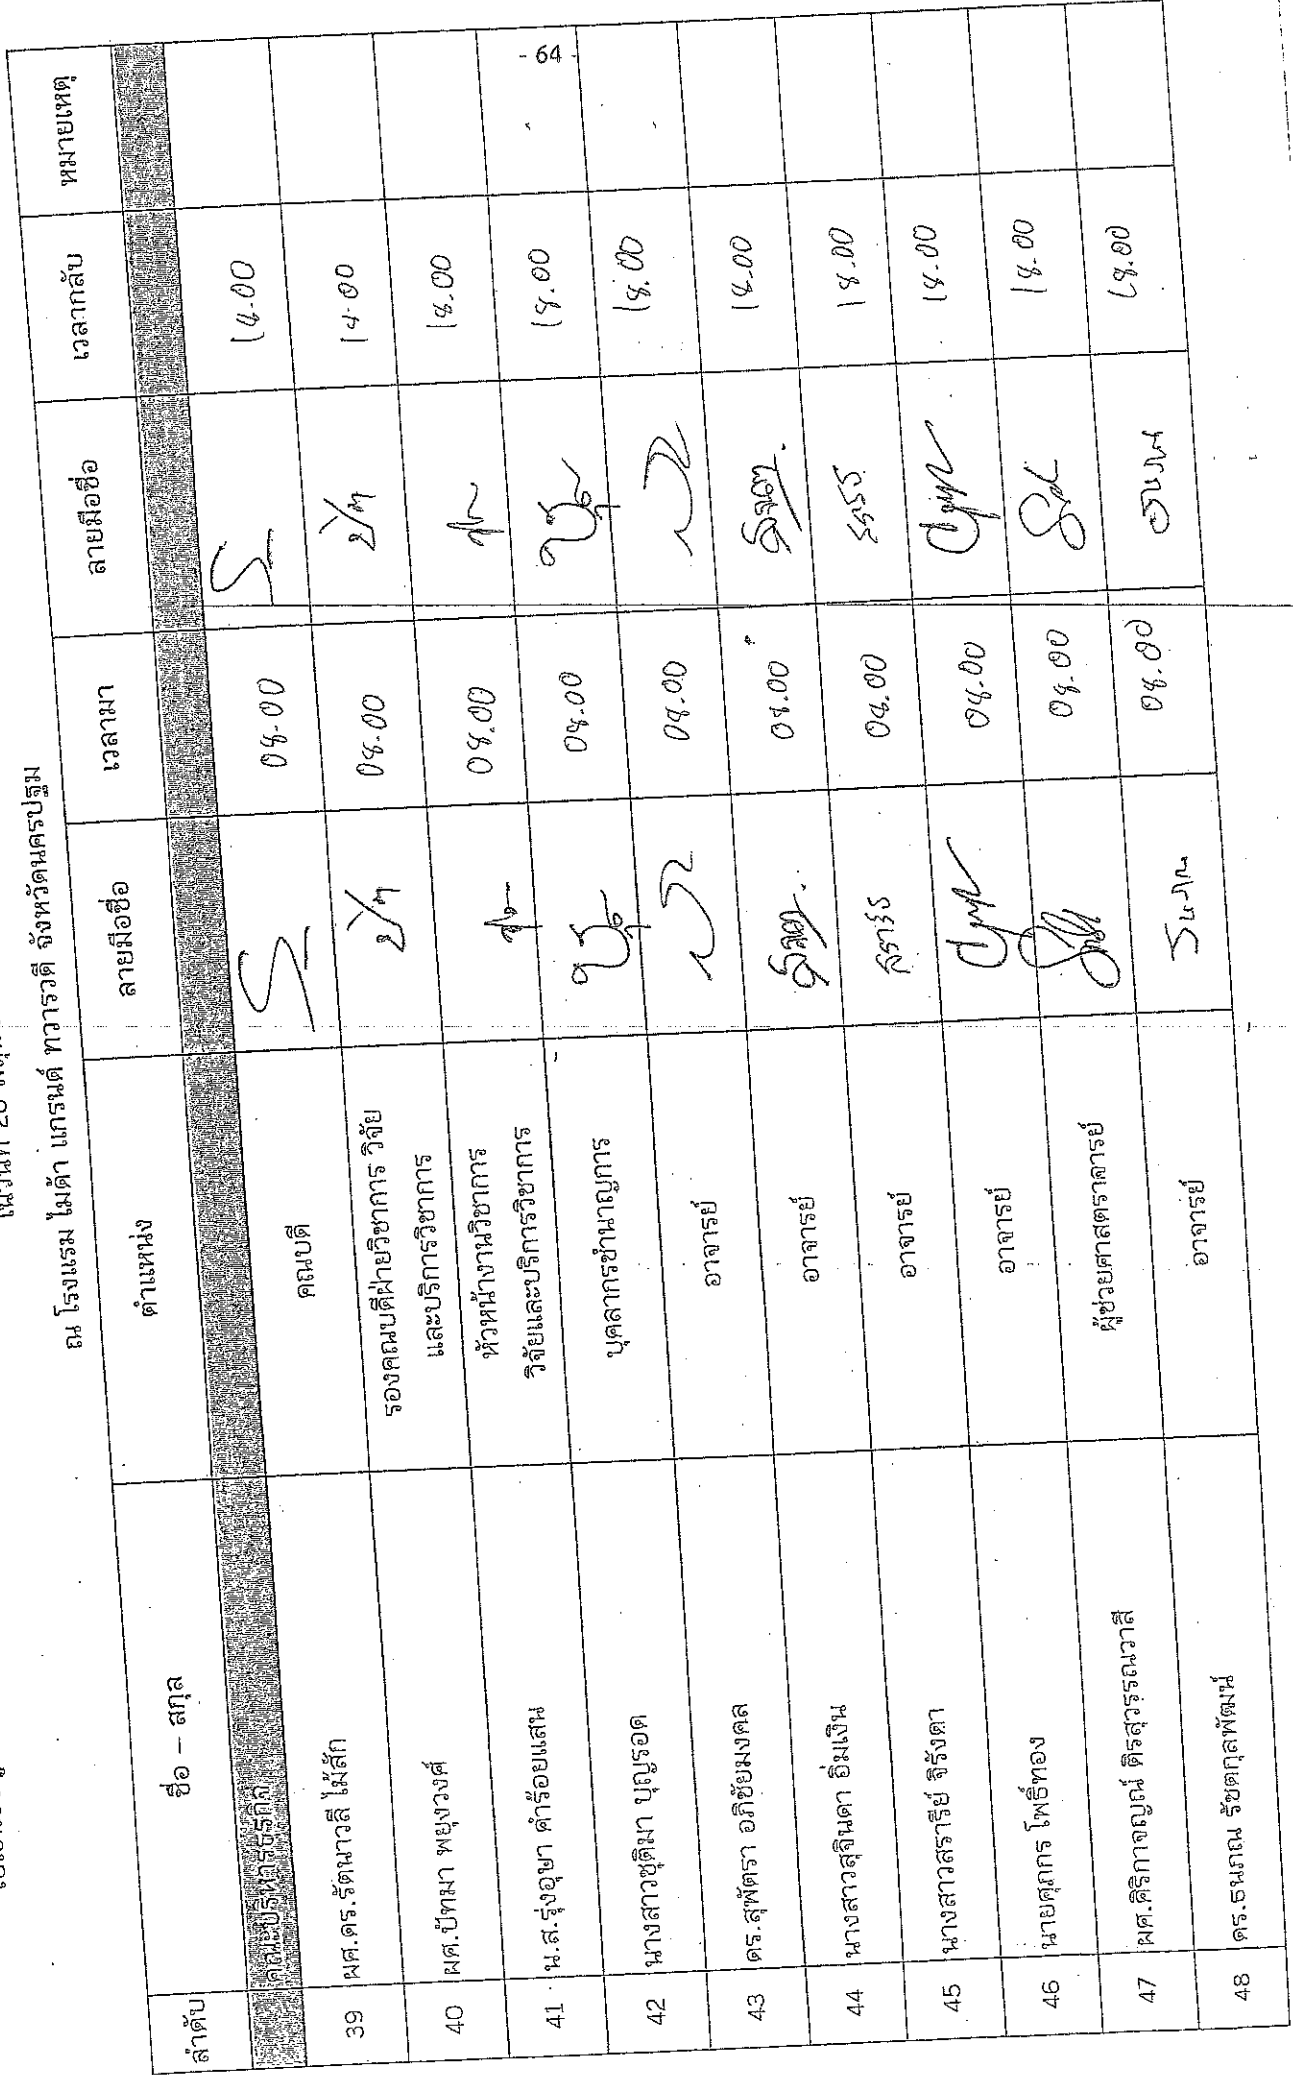 - 64 -
ณ โรงแรม ไมด้า แกรนด์ ทวารวดี จังหวัดนครปฐม
ลำดับ ชื่อ – สกุล ตำแหน่ง ลายมือชื่อ เวลามา ลายมือชื่อ เวลากลับ หมายเหตุ
คณะบริหารธุรกิจ
39 ผศ.ดร.รัตนาวลี ไม้สัก คณบดี 08.00 18.00
40 ผศ.ปัทมา พยุงวงศ์ รองคณบดีฝ่ายวิชาการ วิจัย
และบริการวิชาการ 08.00 18.00
41 น.ส.รุ่งอุษา คำร้อยแสน หัวหน้างานวิชาการ
วิจัยและบริการวิชาการ 08.00 18.00
42 นางสาวชุติมา บุญรอด บุคลากรชำนาญการ 08.00 18.00
43 ดร.สุพัตรา อภิชัยมงคล อาจารย์ 08.00 18.00
44 นางสาวสุจินดา อิ่มเงิน อาจารย์ 08.00 18.00
45 นางสาวสรารีย์ จีรังดา อาจารย์ 08.00 18.00
46 นายศุภกร โพธิ์ทอง อาจารย์ 08.00 18.00
47 ผศ.ศิริกาจญณ์ ดิรสุวรรณวาสี ผู้ช่วยศาสตราจารย์ 08.00 18.00
48 ดร.ธนภณ รัชตกุลพัฒน์ อาจารย์ 08.00 18.00